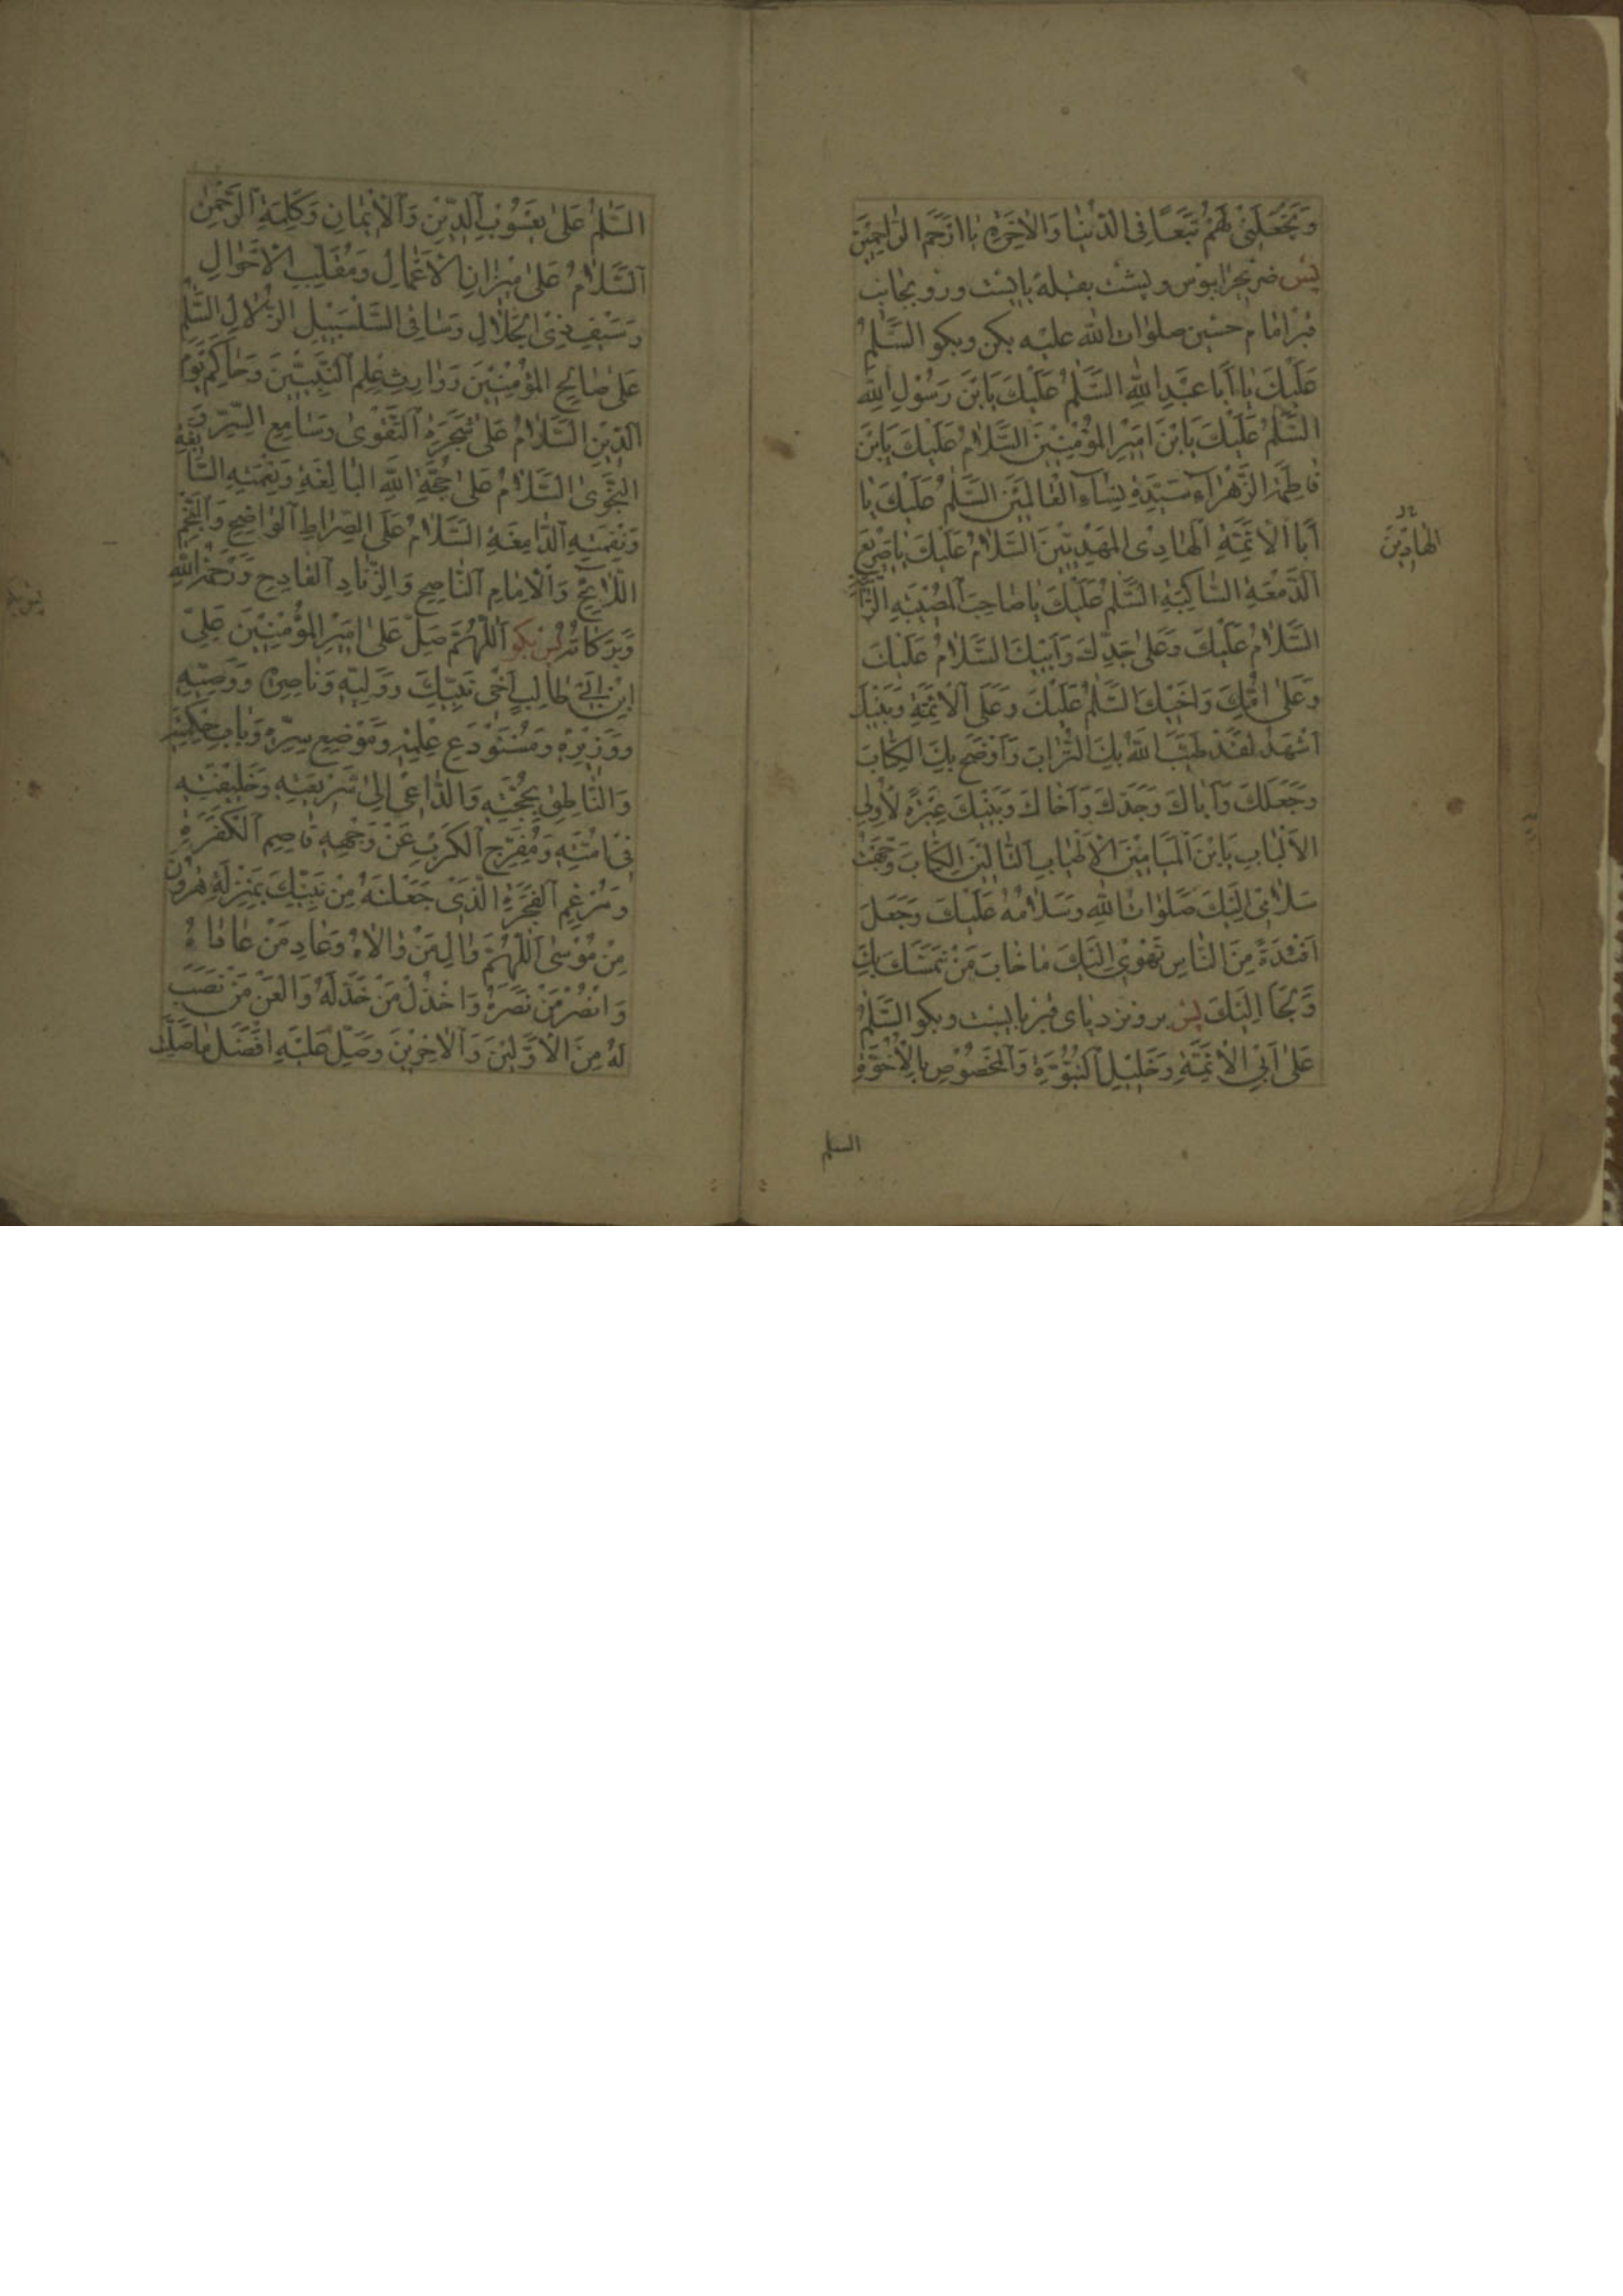 وَتَجْعَلَنِي لَهُمْ تَبَعًا فِي الدُّنْيَا وَالْاٰخِرَةِ يَا اَرْحَمَ الرَّاحِمِينَ
پس ضریح را ببوس و پشت بقبله بایست و رو بجانب
قبر امام حسین صلوات الله علیه بکن و بکو السَّلٰمُ
عَلَيْكَ يَا اَبَا عَبْدِ اللهِ السَّلٰمُ عَلَيْكَ يَابْنَ رَسُولِ اللهِ
السَّلٰمُ عَلَيْكَ يَابْنَ اَمِيرِ الْمُؤْمِنِينَ السَّلَامُ عَلَيْكَ يَابْنَ
فَاطِمَةَ الزَّهْرَآءِ سَيِّدَةِ نِسَاءِ الْعَالَمِينَ السَّلٰمُ عَلَيْكَ يَا
اَبَا الْاَئِمَّةِ الْهَادِى الْمَهْدِيِّينَ السَّلَامُ عَلَيْكَ يَا صَرِيعَ
الْهَادِينَ
الدَّمْعَةِ السَّاكِبَةِ السَّلٰمُ عَلَيْكَ يَا صَاحِبَ الْمُصِيبَةِ الرَّاتِبَةِ
السَّلَامُ عَلَيْكَ وَعَلٰى جَدِّكَ وَاَبِيكَ السَّلَامُ عَلَيْكَ
وَعَلٰى اُمِّكَ وَاَخِيكَ السَّلٰمُ عَلَيْكَ وَعَلَى الْاَئِمَّةِ وَبَنِيكَ
اَشْهَدُ لَقَدْ طَيَّبَ اللهُ بِكَ التُّرَابَ وَاَوْضَحَ بِكَ الْكِتَابَ
وَجَعَلَكَ وَاَبَاكَ وَجَدَّكَ وَاَخَاكَ وَبَنِيكَ عِبْرَةً لِاُولِي
الْاَلْبَابِ يَابْنَ الْمَيَامِينَ الْاَطْيَابِ التَّالِينَ الْكِتَابَ وَجَّهْتُ
سَلَامِي اِلَيْكَ صَلَوَاتُ اللهِ وَسَلَامُهُ عَلَيْكَ وَجَعَلَ
اَفْئِدَةً مِنَ النَّاسِ تَهْوِي اِلَيْكَ مَا خَابَ مَنْ تَمَسَّكَ بِكَ
وَلَجَا اِلَيْكَ پس برو نزد پای قبر بایست و بکو السَّلٰمُ
عَلٰى اَبِي الْاَئِمَّةِ وَخَلِيلِ النُّبُوَّةِ وَالْمَخْصُوصِ بِالْاُخُوَّةِ
السلم
السَّلٰمُ عَلٰى يَعْسُوبِ الدِّينِ وَالْاِيمَانِ وَكَلِمَةِ الرَّحْمٰنِ
السَّلَامُ عَلٰى مِيزَانِ الْاَعْمَالِ وَمُقَلِّبِ الْاَحْوَالِ
وَسَيْفِ ذِي الْجَلَالِ وَسَاقِي السَّلْسَبِيلِ الزُّلَالِ السَّلٰمُ
عَلٰى صَالِحِ الْمُؤْمِنِينَ وَوَارِثِ عِلْمِ النَّبِيِّينَ وَحَاكِمِ يَوْمِ
الدِّينِ السَّلَامُ عَلٰى شَجَرَةِ التَّقْوٰى وَسَامِعِ السِّرِّ وَ
النَّجْوٰى السَّلَامُ عَلٰى حُجَّةِ اللهِ الْبَالِغَةِ وَنِعْمَتِهِ السَّابِغَةِ
وَنِقْمَتِهِ الدَّامِغَةِ السَّلَامُ عَلَى الصِّرَاطِ الْوَاضِحِ وَالنَّجْمِ
اللَّائِحِ وَالْاِمَامِ النَّاصِحِ وَالزِّنَادِ الْقَادِحِ وَرَحْمَةُ اللهِ
وَبَرَكَاتُهُ پس بکو اَللّٰهُمَّ صَلِّ عَلٰى اَمِيرِ الْمُؤْمِنِينَ عَلِيِّ
ابْنِ اَبِي طَالِبٍ اَخِي نَبِيِّكَ وَوَلِيِّهِ وَنَاصِرِهِ وَوَصِيِّهِ
وَوَزِيرِهِ وَمُسْتَوْدَعِ عِلْمِهِ وَمَوْضِعِ سِرِّهِ وَبَابِ حِكْمَتِهِ
وَالنَّاطِقِ بِحُجَّتِهِ وَالدَّاعِي اِلٰى شَرِيعَتِهِ وَخَلِيفَتِهِ
فِي اُمَّتِهِ وَمُفَرِّجِ الْكَرْبِ عَنْ وَجْهِهِ قَاصِمِ الْكَفَرَةِ
وَمُرْغِمِ الْفَجَرَةِ الَّذِي جَعَلْتَهُ مِنْ نَبِيِّكَ بِمَنْزِلَةِ هٰرُونَ
مِنْ مُوسٰى اَللّٰهُمَّ وَالِ مَنْ وَالَاهُ وَعَادِ مَنْ عَادَاهُ
وَانْصُرْ مَنْ نَصَرَهُ وَاخْذُلْ مَنْ خَذَلَهُ وَالْعَنْ مَنْ نَصَبَ
لَهُ مِنَ الْاَوَّلِينَ وَالْاٰخِرِينَ وَصَلِّ عَلَيْهِ اَفْضَلَ مَا صَلَّيْتَ